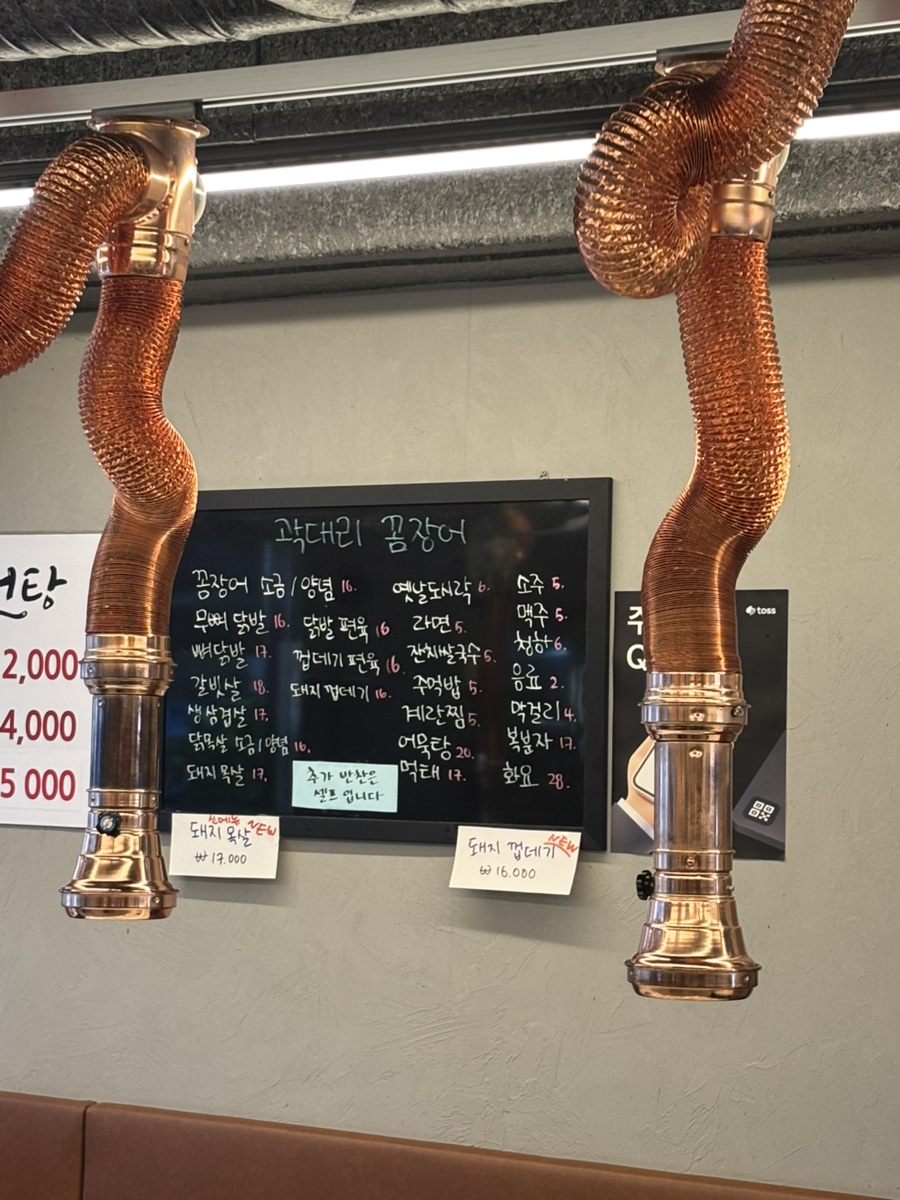 탕
2,000
4,000
5 000
곽대리 꼼장어
꼼장어 소금/양념 16.
무뼈 닭발 16.
뼈닭발 17.
갈빗살 18.
생삼겹살 17.
닭목살 소금/양념 16.
돼지목살 17.
닭발 편육 16
껍데기 편육 16
돼지껍데기 16.
추가 반찬은
셀프 입니다
옛날도시락 6.
라면 5.
잔치쌀국수 5.
주먹밥 5.
계란찜 5.
어묵탕 20.
먹태 17.
소주 5.
맥주 5.
청하 6.
음료 2.
막걸리 4.
복분자 17.
화요 28.
신메뉴
돼지 목살 NEW
₩17.000
돼지 껍데기 NEW
₩16.000
주
Q
toss